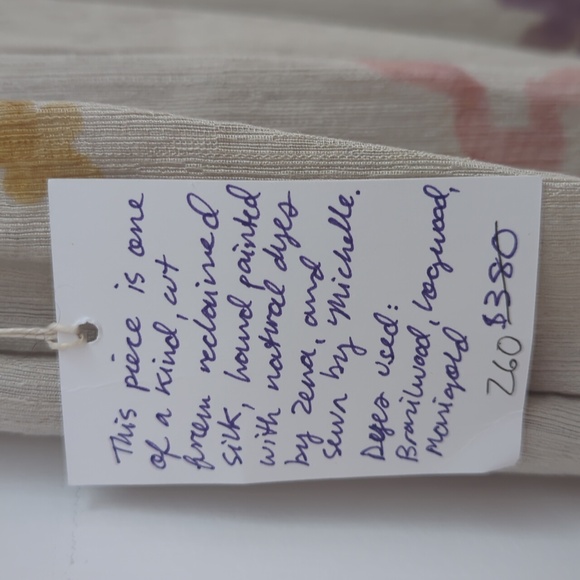 This piece is one
of a kind, cut
from reclaimed
silk, hand painted
with natural dyes
by Zena, and
sewn by Michelle.
Dyes used:
Brazilwood, Logwood,
Marigold
$380
260